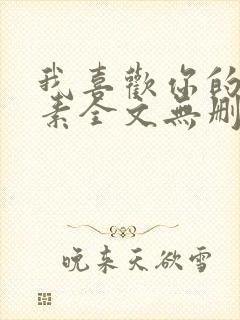 我喜歡你的
素全文無刪
晚来天欲雪